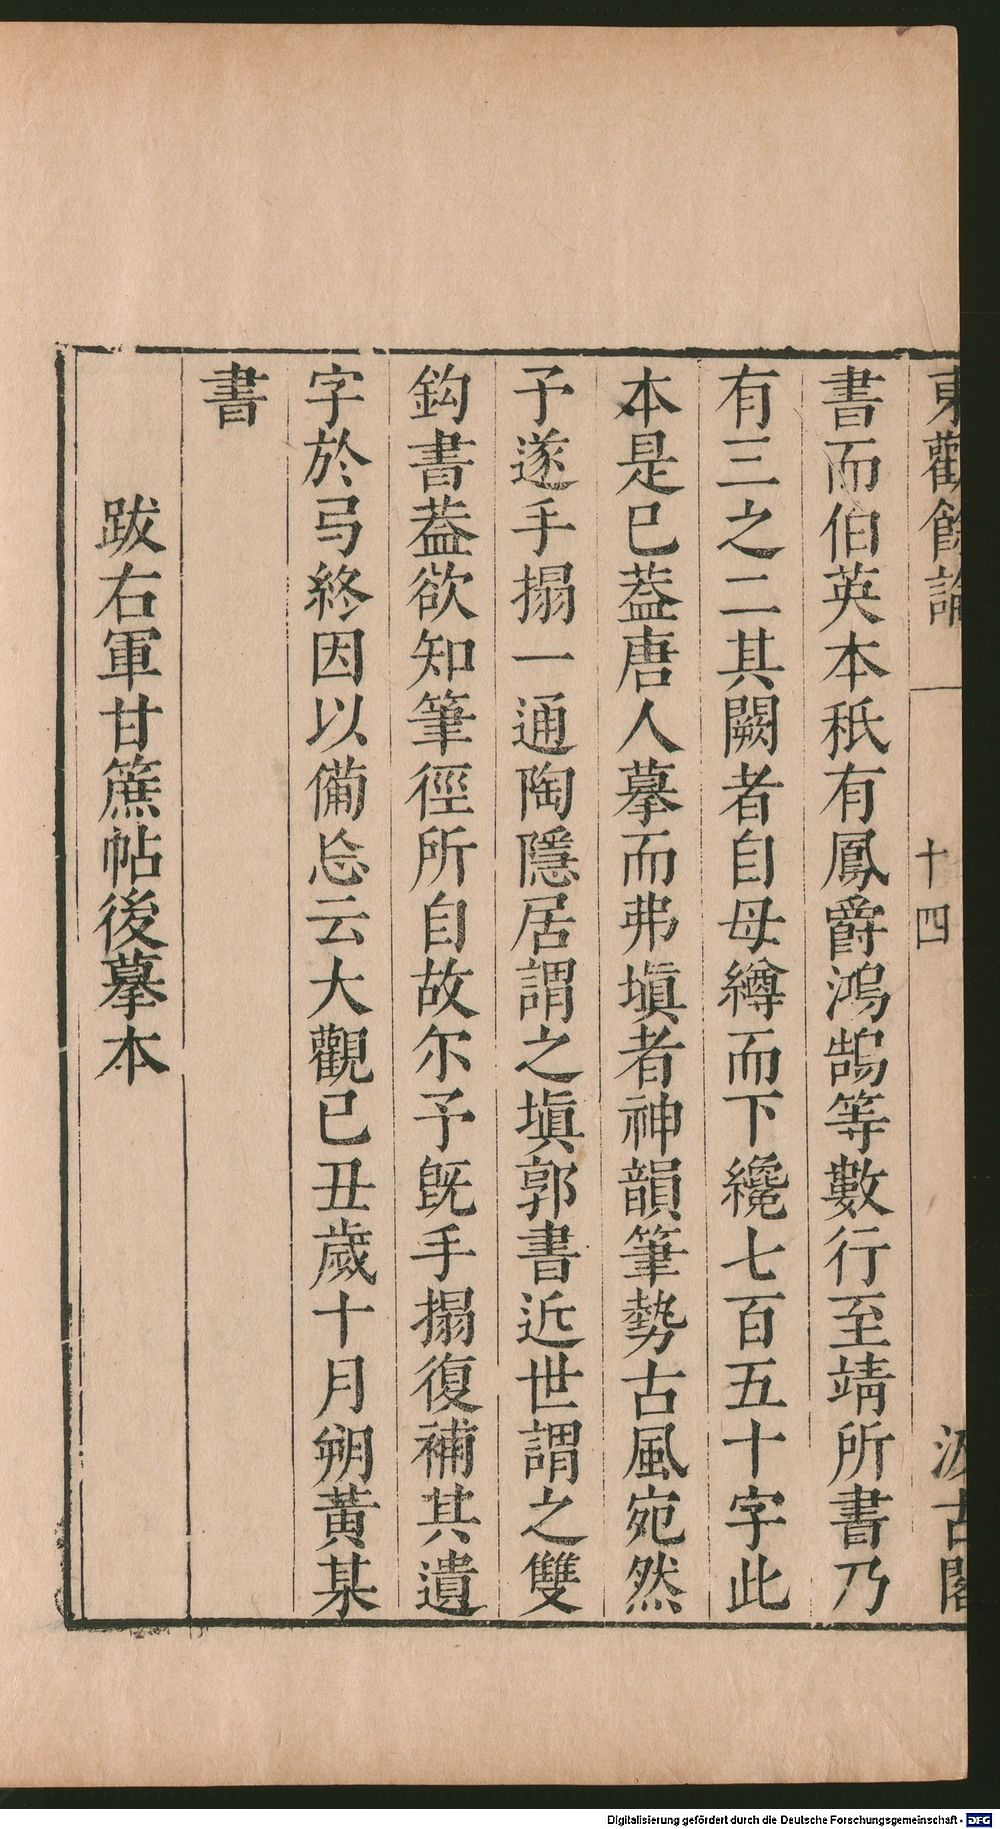 東觀餘論
十四
汲古閣
書而伯英本秖有鳳爵鴻鵠等數行至靖所書乃
有三之二其闕者自母繜而下纔七百五十字此
本是已葢唐人摹而弗塡者神韻筆勢古風宛然
予遂手搨一通陶隱居謂之塡郭書近世謂之雙
鈎書葢欲知筆徑所自故尔予旣手搨復補其遺
字於弓終因以備忘云大觀己丑歲十月朔黃某
書
跋右軍甘簾帖後摹本
Digitalisierung gefördert durch die Deutsche Forschungsgemeinschaft - DFG